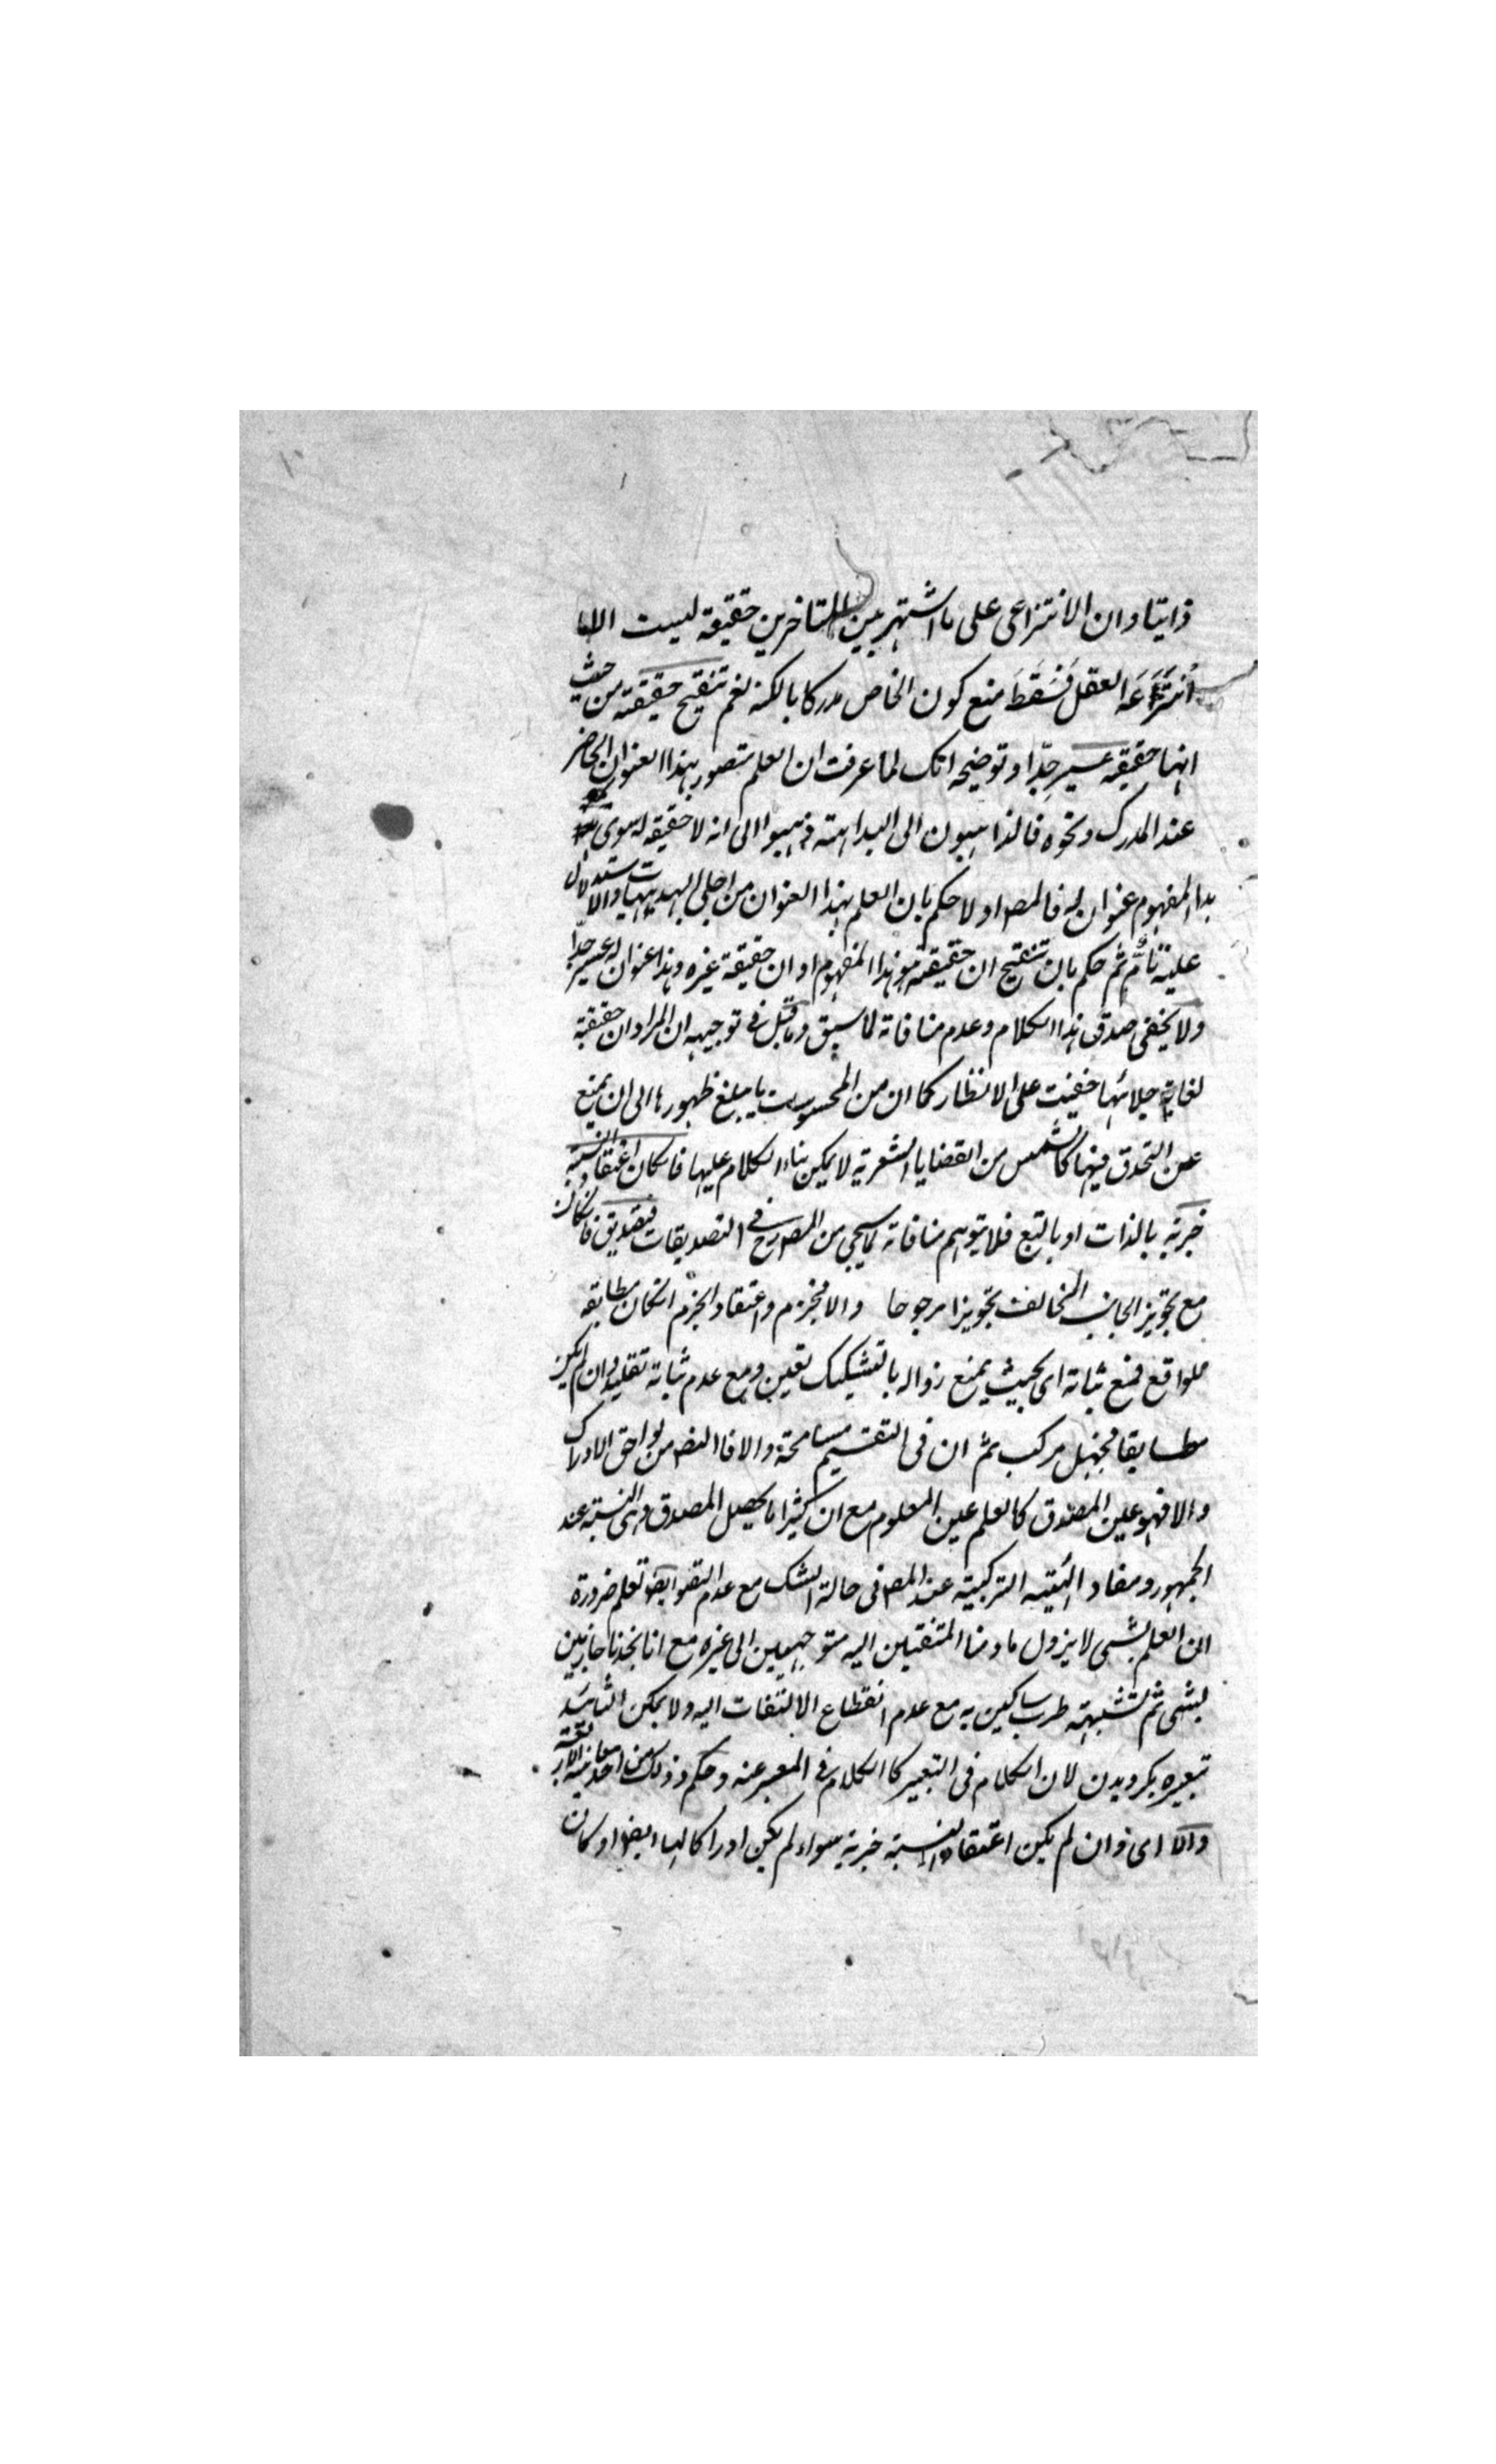 ذاتيا وان الانتزاعى على ما اشتهر بين المتاخرين حقيقة ليست الا ما
انتزعه العقل فسقط منع كون الخاص مدركا بالكنه نعم تنقيح حقيقته من حيث
انها حقيقه عسير جدّا وتوضيحه انك لما عرفت ان العلم متصور بهذا العنوان الحاضر
عند المدرك ونحوه فالذاهبون الى البداهة ذهبوا الى انه لا حقيقه له سوى
هذا المفهوم عنوان له فالمصـ اولا حكم بان العلم بهذا العنوان من اجلى البديهيات والاستدلال
عليه تام ثم حكم بان تنقيح ان حقيقته هو هذا المفهوم او ان حقيقة غيره وهذا عنوان له عسير جدّا
ولا يخفى صدق هذا الكلام وعدم منافاته لما سبق وما قيل فى توجيهه ان المراد ان حقيقته
لغاية جلائها خفيت على الانظار كما ان من المحسوسات ما يبلغ ظهورها الى ان يمنع
عن التحدق فيها كالشمس من القضايا الشعرية لا يمكن بناء الكلام عليها فان كان اعتقاد النسبة
خبرية بالذات او بالتبع فلا يتوهم منافاته لما سيجئ من المصـ فى التصديقات فتصديق فان كان
مع تجويز الجانب المخالف تجويزا مرجوحا والا فجزم واعتقاد الجزم ان كان مطابقه
للواقع فمع ثباته اى بحيث يمنع زواله بالتشكيك يقين ومع عدم ثباته تقليد وان لم يكن
مطابقا فجهل مركب ثم ان فى التقسيم مسامحة والا فالتصـ من لواحق الادراك
والا فهو عين المصدق كالعلم عين المعلوم مع ان كثيرا ما يحصل المصدق وهى النسبة عند
الجمهور ومفاد الهيئة التركيبية عند المصـ فى حالة الشك مع عدم التصـ وايضا نعلم ضرورة
ان العلم بشئ لا يزول ما دمنا ملتفتين اليه متوجهين الى غيره مع انا نجدنا جازمين
بشئ ثم تشبهته طرب ساكين به مع عدم انقطاع الالتفات اليه ولا يمكن
تعبيره بكرويدن لان الكلام فى التعبير كالكلام فى المعبر عنه وحكم
والا اى وان لم يكن اعتقاد النسبة خبرية سواء لم يكن ادراكا لها ايضا او كان